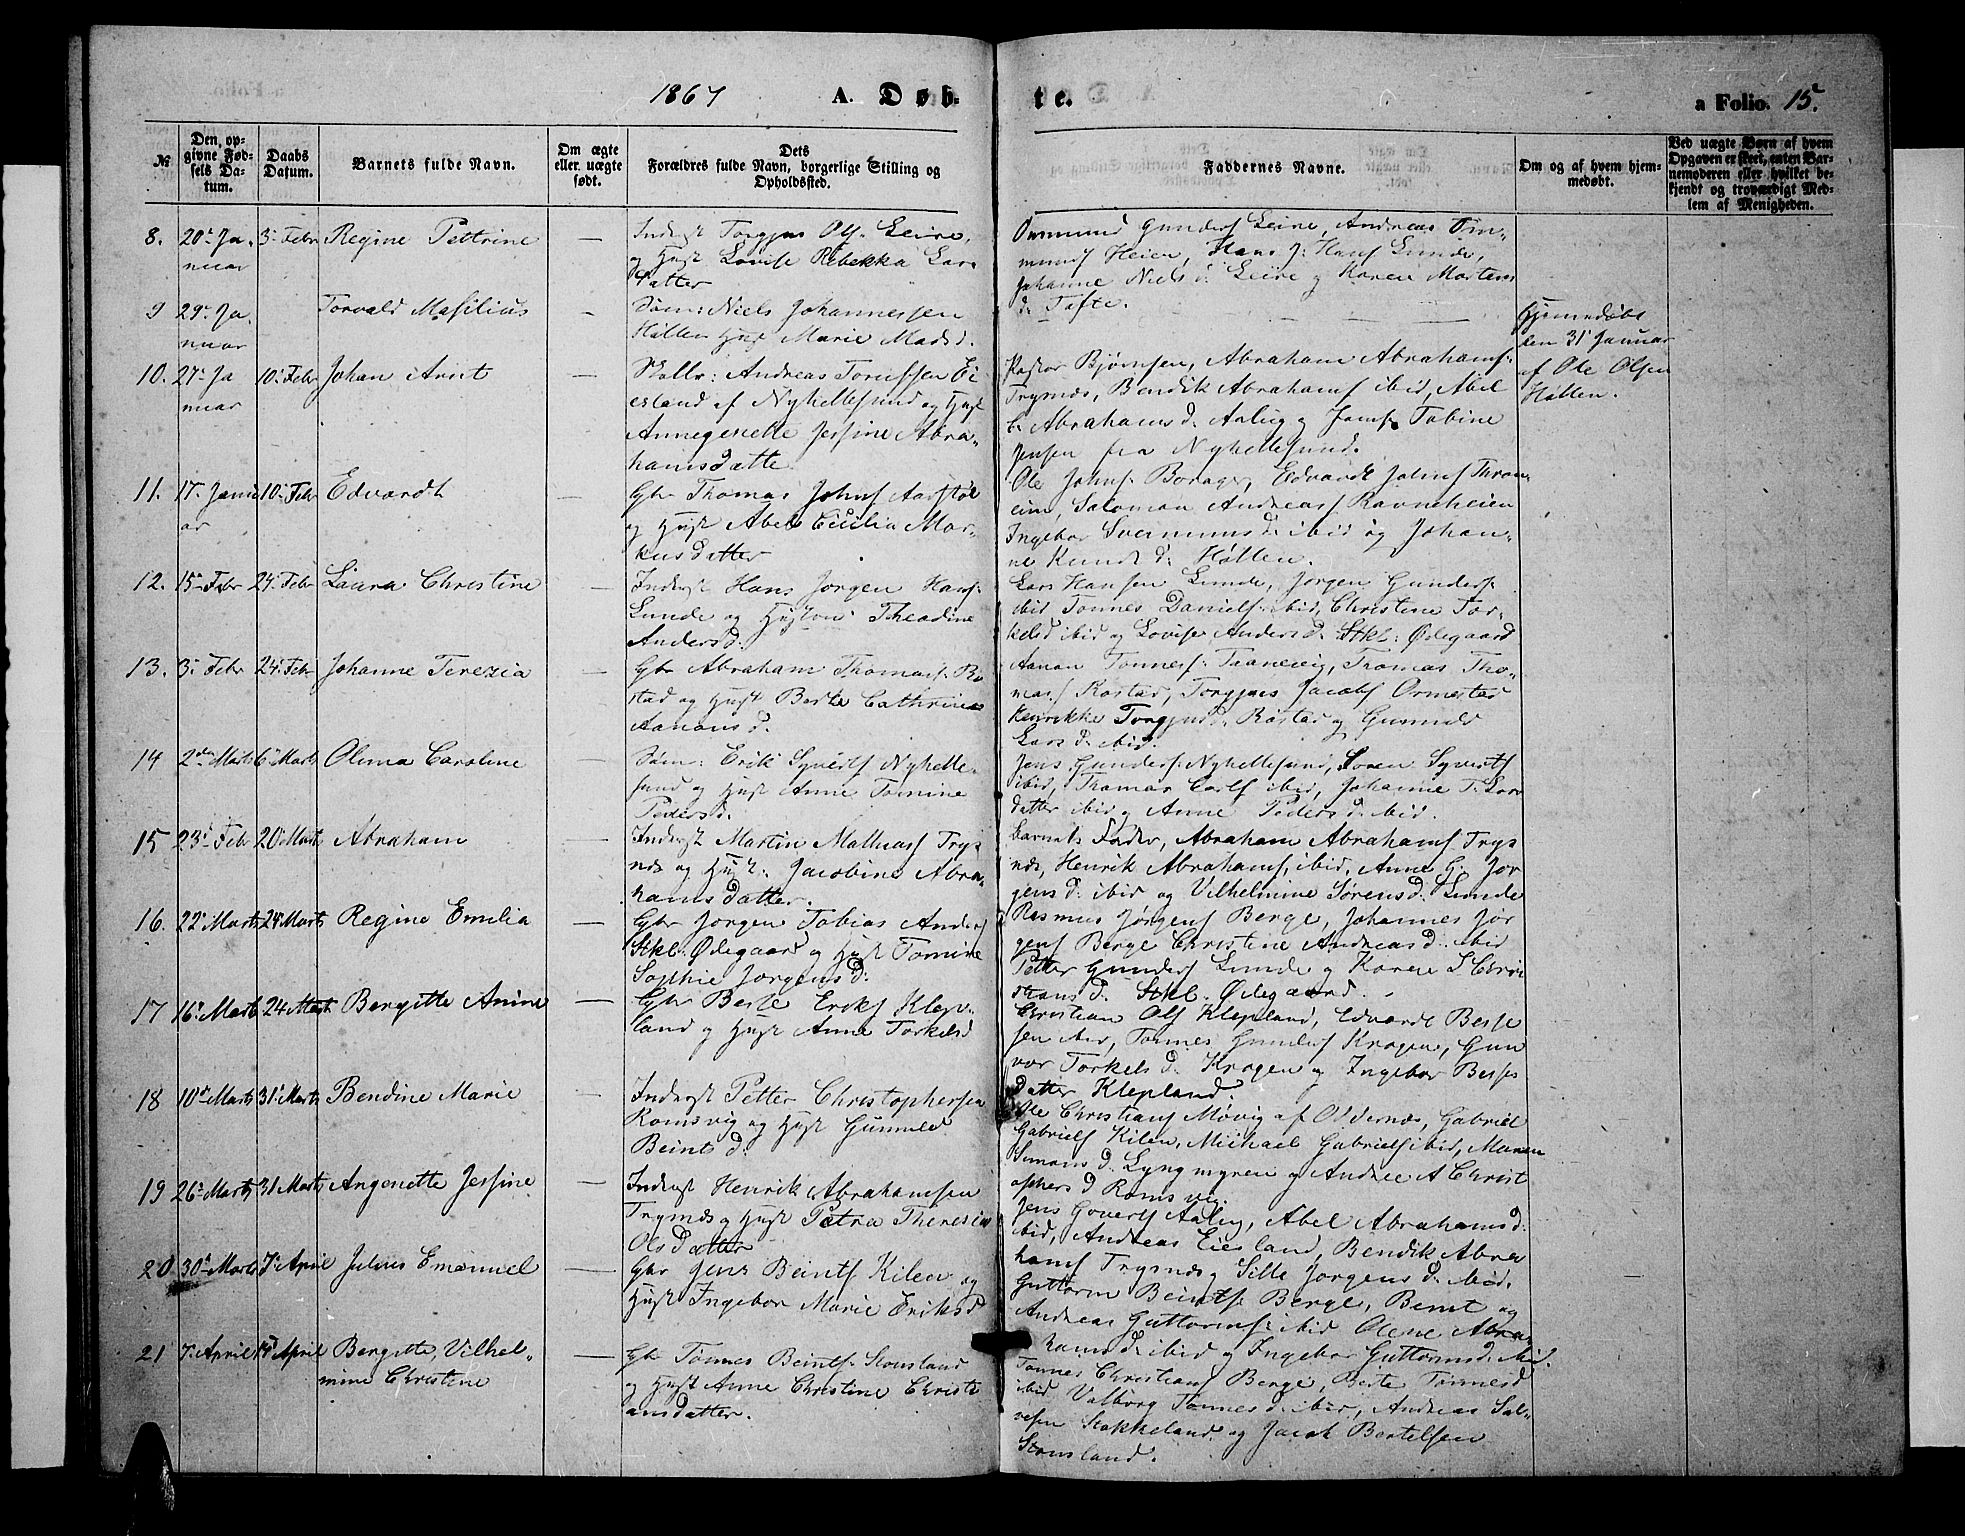 1867 A. Døb-
te.
a Folio. 15.
№
Den op-
givne Fød-
sels Da-
tum.
Daabs
Datum.
Barnets fulde Navn.
Om ægte
eller uægte
født.
Dets
Forældres fulde Navn, borgerlige Stilling og
Opholdssted.
Faddernes Navne.
Om og af hvem hjem-
medøbt.
Ved uægte Børn af hvem
Opgaven er skeet, enten Bar-
nemoderen eller hvilket be-
kjendt og troværdigt Med-
lem af Menigheden.
8. 20de Ja-
nuar
3. Febr
Regine Pettrine
—
Inderst Torgjus Ols. Leire,
og Hust Lovise Rebekka Lars
Datter
Osmund Gunders Leire, Andreas Om-
munds Heien, Hans J: Hans Lunde,
Johanne Niels d: Leire og Karen Mortens
d: Tofte.
9 29. Ja-
nuar
Torvald Masilius
—
Søm: Niels Johannessen
Hølten Hust Marie Mads d.
Hjemmedøbt
den 31 Januar
af Ole Olsen
Hølten.
10. 27. Ja
nuar
10. Febr
Johan Arnt
—
Andreas Torjussen Ei
esland af Nyhellesund og Hust
Annegenette Jessine Abra-
hamsdatter
Pastor Bjørnsen, Abraham Abrahams:
Trysnæs, Bendik Abrahams ibid, Abel
C. Abrahams d. Aalug og Jomf. Tobine
Jensen fra Nyhellesund.
11. 17. Janu
ar
10. Febr
Edvardt
—
Gbr Thomas Johns Aarstøl
og Hust Abel Cicilia Mar-
kusdatter
Ole Johns: Borager, Edvardt Johns Thron-
eim, Salomon Andreas Ravneheien
Ingebor d: ibid og Johan-
ne Knuds d: Hølten.
12. 15. Febr 24. Febr
Laura Christine
—
Inderst Hans Jørgen Hans:
Lunde og Hustru Theodine
Anders d:
Lars Hansen Lunde, Jørgen Gunders:
ibid Tønnes Daniels: ibid, Christine Tor-
kelsd ibid og Lovise Anders d: Stkl: Ødegaard
13. 3. Febr 24. Febr
Johanne Terezia
—
Gbr Abraham Thomas: Ro
stad og Hust Berte Cathrine
Aanons d.
Aanon Tønnes: Taanevig, Thomas Tho-
mas Rostad, Torgjus Jacobs Ormestad
Henrikke Torgjusd: Rostad og Gunnild
Lars d: ibid.
14 2den Marts 6. Marts
Olema Caroline
—
Søm: Erik Syverts Nyhelle-
sund og Hust Anne Tomine
Peders d.
Jens Gunders: Nyhellesund, Soren Syverts
ibid, Thomas Carls ibid, Johanne T. Lars
datter ibid og Anne Peders d: ibid.
15 23. Febr 20. Marts
Abraham
—
Inderst Martin Mathias Trys
næs og Hust: Jacobine Abra-
hamsdatter.
Barnets Fader, Abraham Abrahams Trys
næs, Henrik Abrahams, ibid, Anne G. Jør
gens d: ibid og Vilhelmine Sørens d: Lunde
16. 22. Marts 24 Marts
Regine Emilia
—
Gbr Jørgen Tobias Anders
Stkl: Ødegaard og Hust Tomine
Sophie Jorgens d:
Rasmus Jørgens Berge, Johannes Jør
gens Berge Christine Andreas d: ibid
Petter Gunders Lunde og Karen S Chri
stians d: Stkl: Ødegaard.
17 16. Marts 24 Marts
Bergitte Anine
—
Gbr Berte Eriks Klep-
land og Hust Anne Torkelsd
Christian Ols Klepland, Edvardt Besse
sen ibid, Tønnes Gunders Kragen, Gun
vor Torkels d: Kragen og Ingebor Besses
datter Klepland.
18 10de Marts 31. Marts
Bendine Marie
—
Inderst Petter Christophersen
Romsvig og Hust Gunnild
Beints d:
Ole Christians Møvig af Oldernæs, Gabriel
Gabriels Kilen, Michael Gabriels ibid, Maren
Simons d: Lyngmyren og Andrea A Christ
ophers d Romsvig.
19 26. Marts 31 Marts
Angenette Jessine
—
Inderst Henrik Abrahamsen
Trysnæs og Hust Petra Therezia
Olsdatter
Jens Goverts Aalug, Abel Abrahams d:
ibid, Andreas Eiesland, Bendik Abra
hams Trysnæs og Sille Jorgens d: ibid.
20. 30. Marts 7. April
Julius Emanuel
—
Gbr Jens Beints Kilen og
Hust Ingebor Marie Eriksd
Guttorm Beints Berge, Bernt og
Andreas Guttorms: ibid Olene Abra-
hams d: ibid og Ingebor Guttorms d: ibid.
21 7. April 14 April
Bergitte, Vilhel-
mine Christine
—
Gbr Tønnes Beints: Stousland
og Hust Anne Christine Christi
ansdatter.
Tønnes Christians Berge, Berte Tønnesd
ibid Valborg Tønnes d: ibid, Andreas Sal-
vesen Stokkeland og Jacob Bertelsen
Stousland.